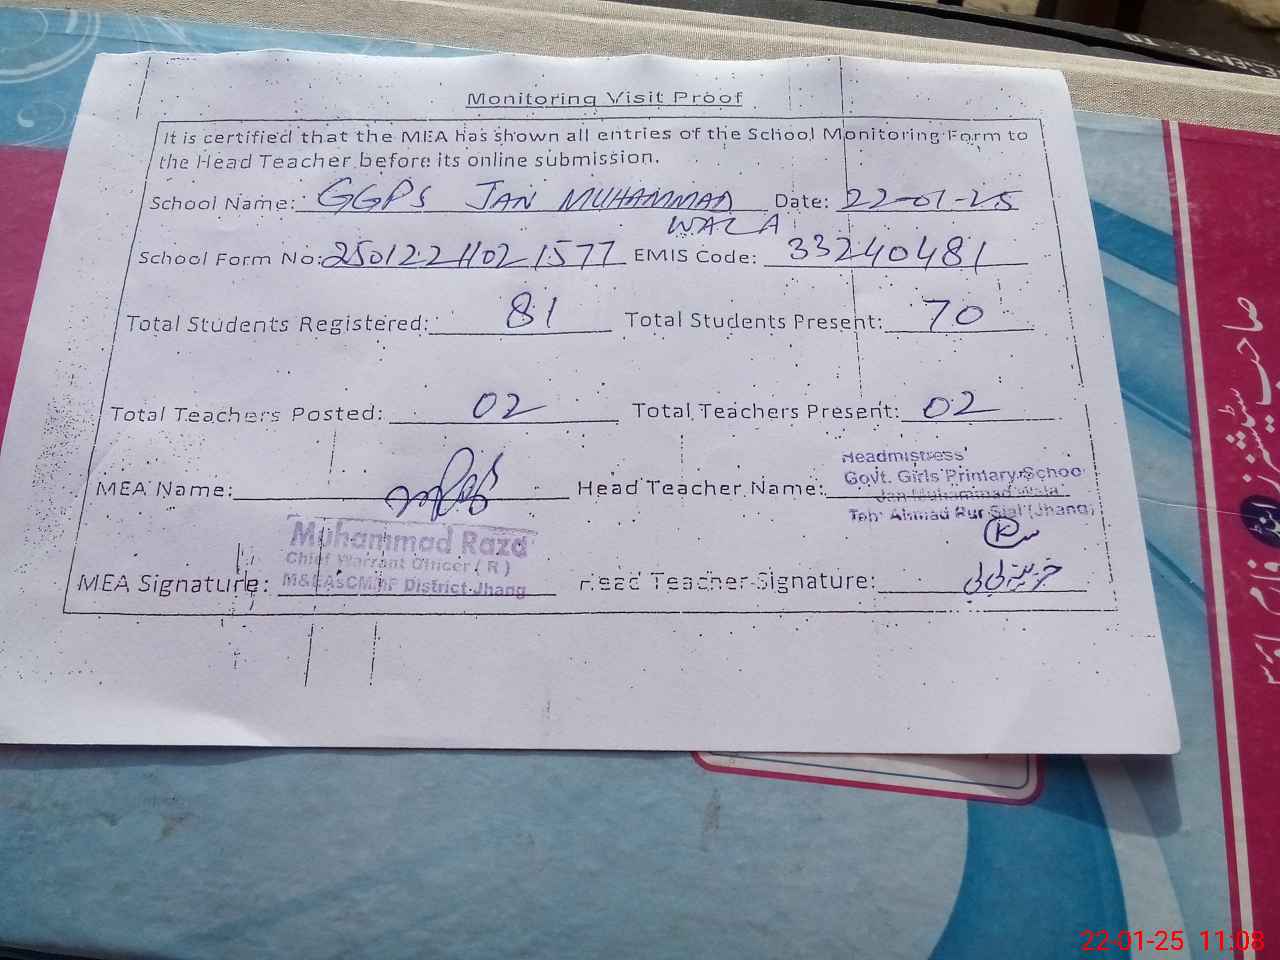 Monitoring Visit Proof
It is certified that the MEA has shown all entries of the School Monitoring Form to
the Head Teacher before its online submission.
School Name: GGPS JAN MUHAMMAD Date: 22-01-25
WALA
School Form No: 2501221102 1577 EMIS Code: 33240481
Total Students Registered: 81 Total Students Present: 70
Total Teachers Posted: 02 Total Teachers Present: 02
Headmistress
Govt. Girls Primary School
MEA Name: Head Teacher Name:
Jan Muhammad Wala
Teh: Ahmad Pur Sial (Jhang)
Muhammad Raza
Chief Warrant Officer ( R )
MEA Signature: M&EAsCM.PF District Jhang Head Teacher Signature:
صاحب سٹیشنرز اینڈ فارم
22-01-25 11:08